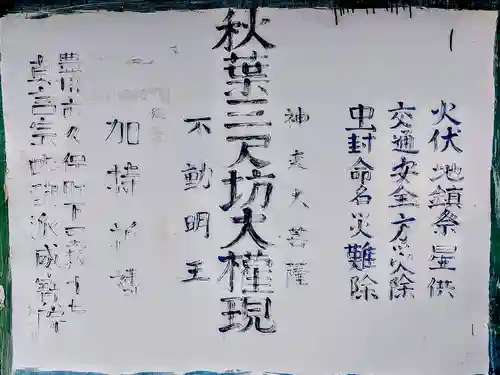 火伏地鎮祭星供
交通安全方災除
虫封命名災難除
神変大菩薩
秋葉三尺坊大權現
不動明王
加持祈禱
豊川市久保町下
真言宗醍醐派成